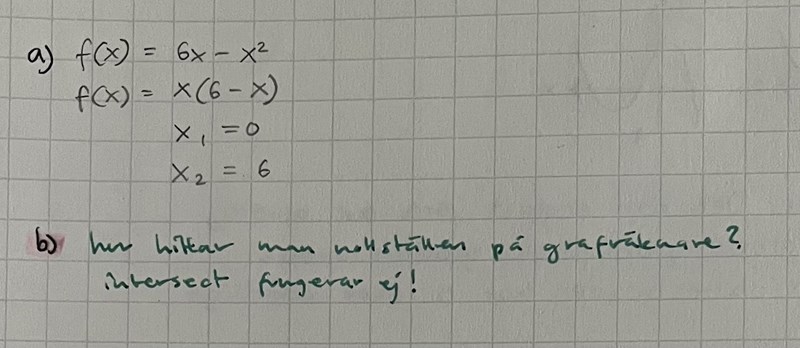 a) f(x) = 6x - x²
f(x) = x(6 - x)
x₁ = 0
x₂ = 6
b) hur hittar man nollställen på grafräknare?
intersect fungerar ej!